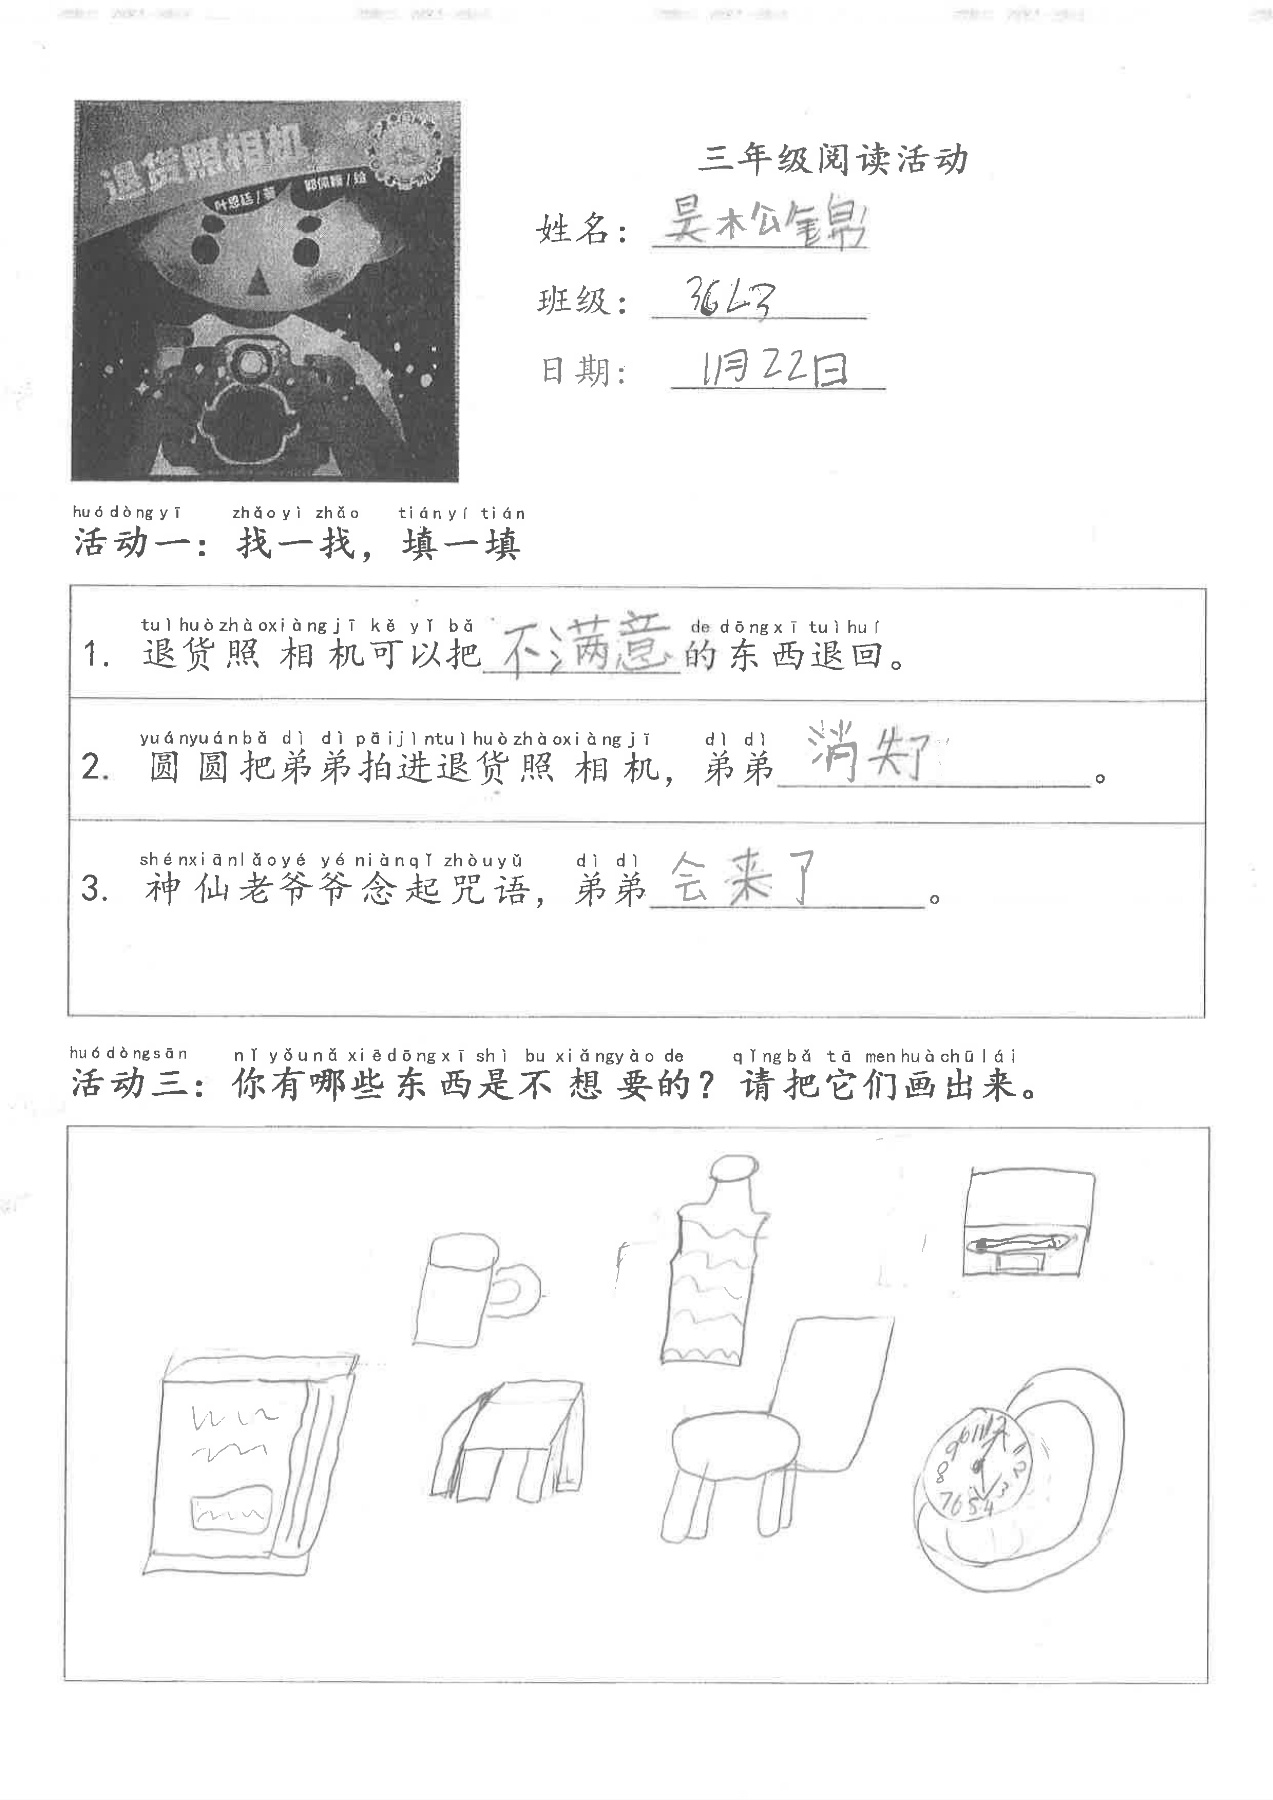 退货照相机
叶恩廷/著 郭佩颖/绘
三年级阅读活动
姓名:
班级: 36L3
日期: 1月22日
huódòngyī zhǎoyìzhǎo tiányítián
活动一:找一找,填一填
tuìhuòzhàoxiàngjī kě yǐ bǎ de dōngxī tuìhuí
1. 退货照相机可以把不满意的东西退回。
yuányuánbǎ dì dì pāijìntuìhuòzhàoxiàngjī dì dì
2. 圆圆把弟弟拍进退货照相机,弟弟消失了。
shénxiānlǎoyé yé niànqǐ zhòuyǔ dì dì
3. 神仙老爷爷念起咒语,弟弟会来了。
huódòngsān nǐ yǒunǎ xiēdōngxī shì bu xiǎngyào de qǐngbǎ tā menhuàchūlái
活动三:你有哪些东西是不想要的?请把它们画出来。